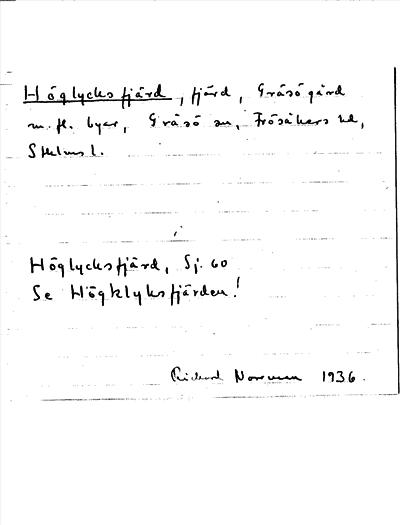 Höglycksfjärd, fjärd, Gräsögård
m. fl. byar, Gräsö sn, Frösåkers hd,
Sthlms l.
Höglycksfjärd, Sj. 60
Se Högklyksfjärden!
Rickard 1936.